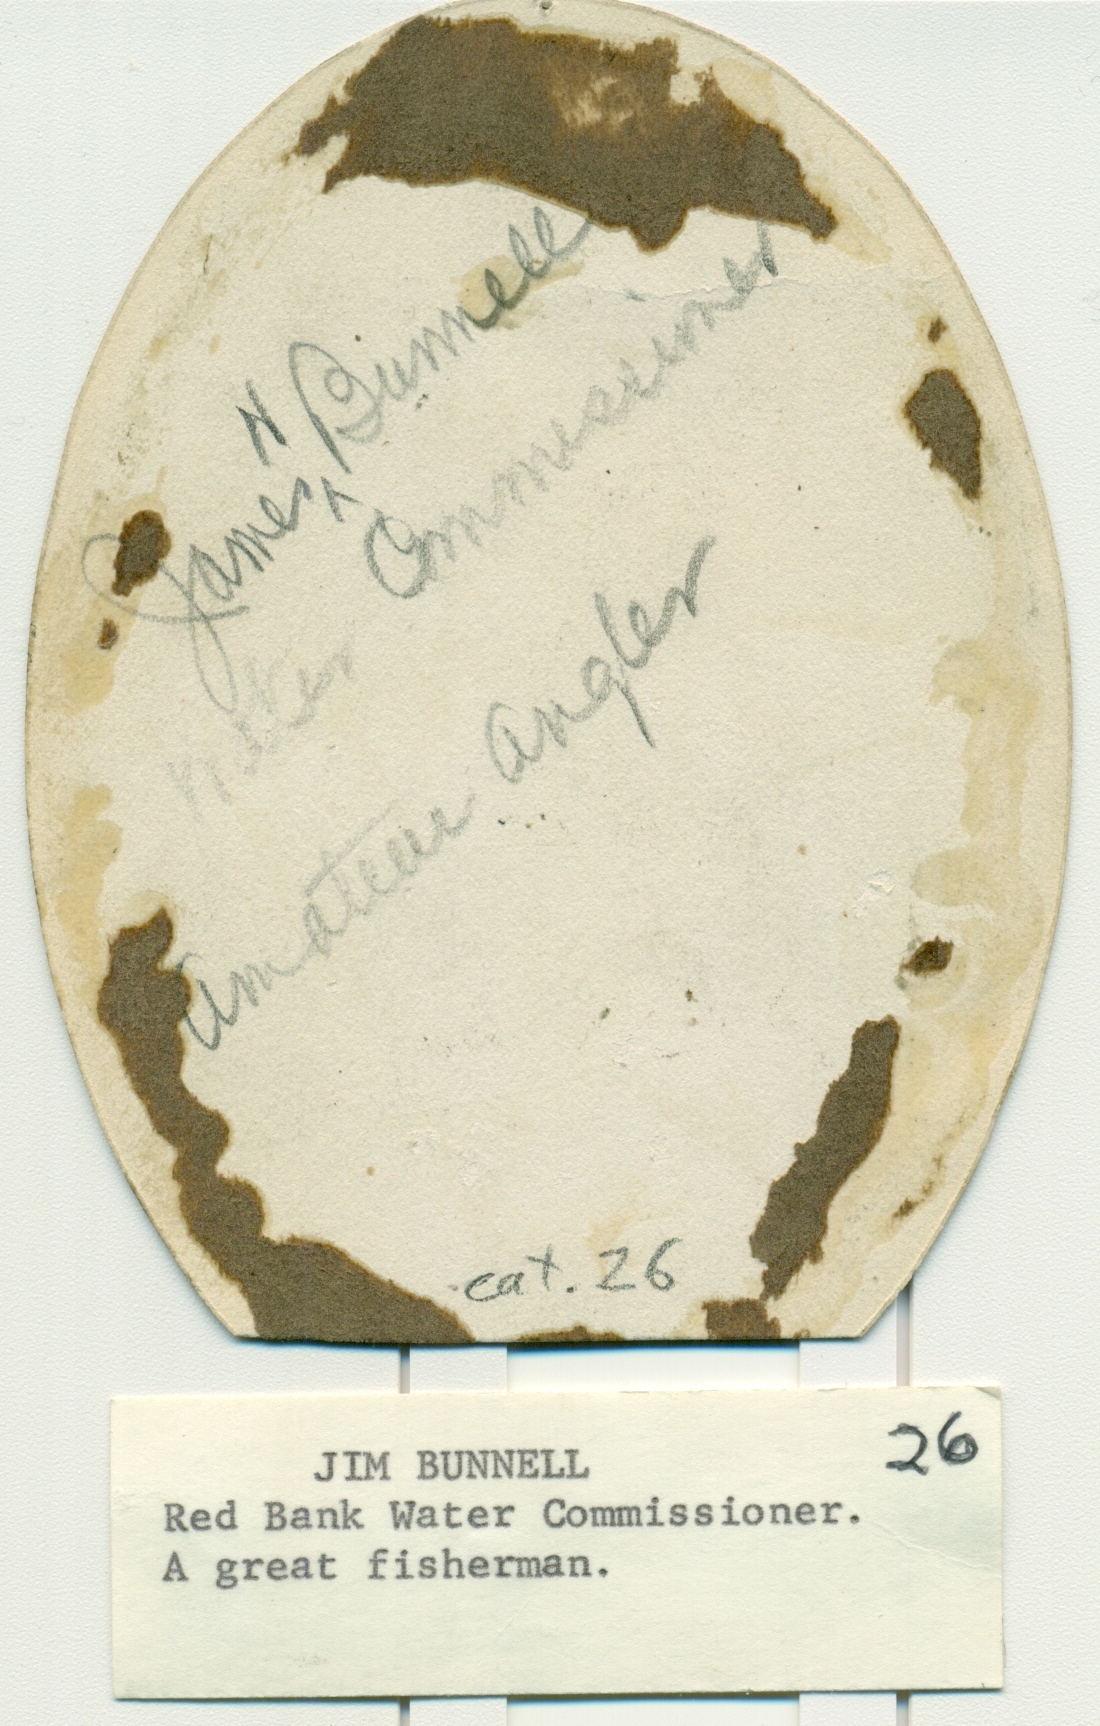 James H Bunnell
Water Commissioner
Amateur Angler
cat. 26
JIM BUNNELL
26
Red Bank Water Commissioner.
A great fisherman.